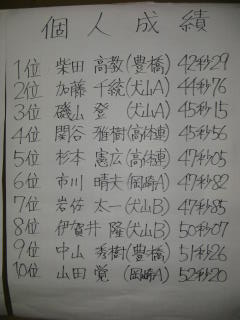 個人成績
1位 柴田 高教(豊橋) 42秒29
2位 加藤 千統(犬山A) 44秒76
3位 磯山 登 (犬山A) 45秒15
4位 関谷 雅樹(高体連) 45秒56
5位 杉本 憲広(高体連) 47秒05
6位 市川 晴夫(岡崎A) 47秒82
7位 岩佐 太一(犬山B) 47秒85
8位 伊賀井 隆(犬山B) 50秒07
9位 中山 秀樹(豊橋) 51秒26
10位 山田 覚 (岡崎A) 52秒20